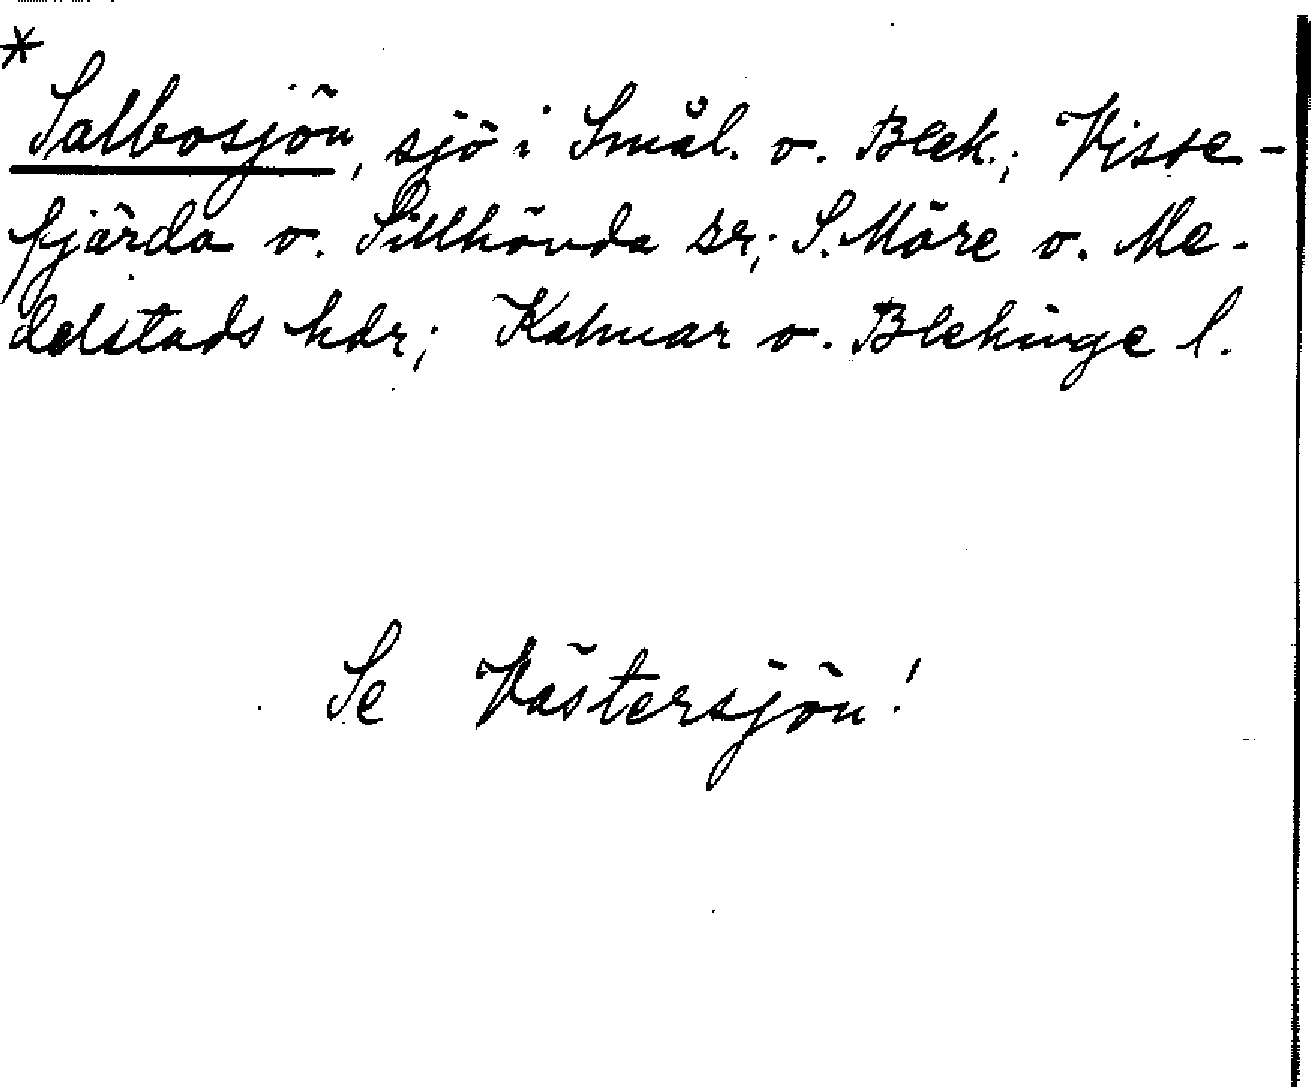 * Salbosjön, sjö i Smål. o. Blek.; Visse-
fjärda o. Sillhövda sr; S. Möre o. Me-
delstads hdr; Kalmar o. Blekinge l.
Se Västersjön!